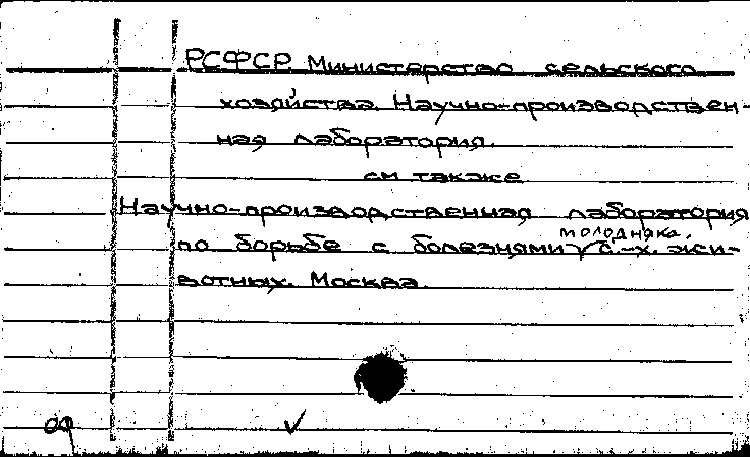 РСФСР. Министерство сельского
хозяйства. Научно-производствен-
ная лаборатория.
см также
Научно-производственная лаборатория
молодняка.
по борьбе с болезнями √ с.-х. жи-
вотных. Москва.